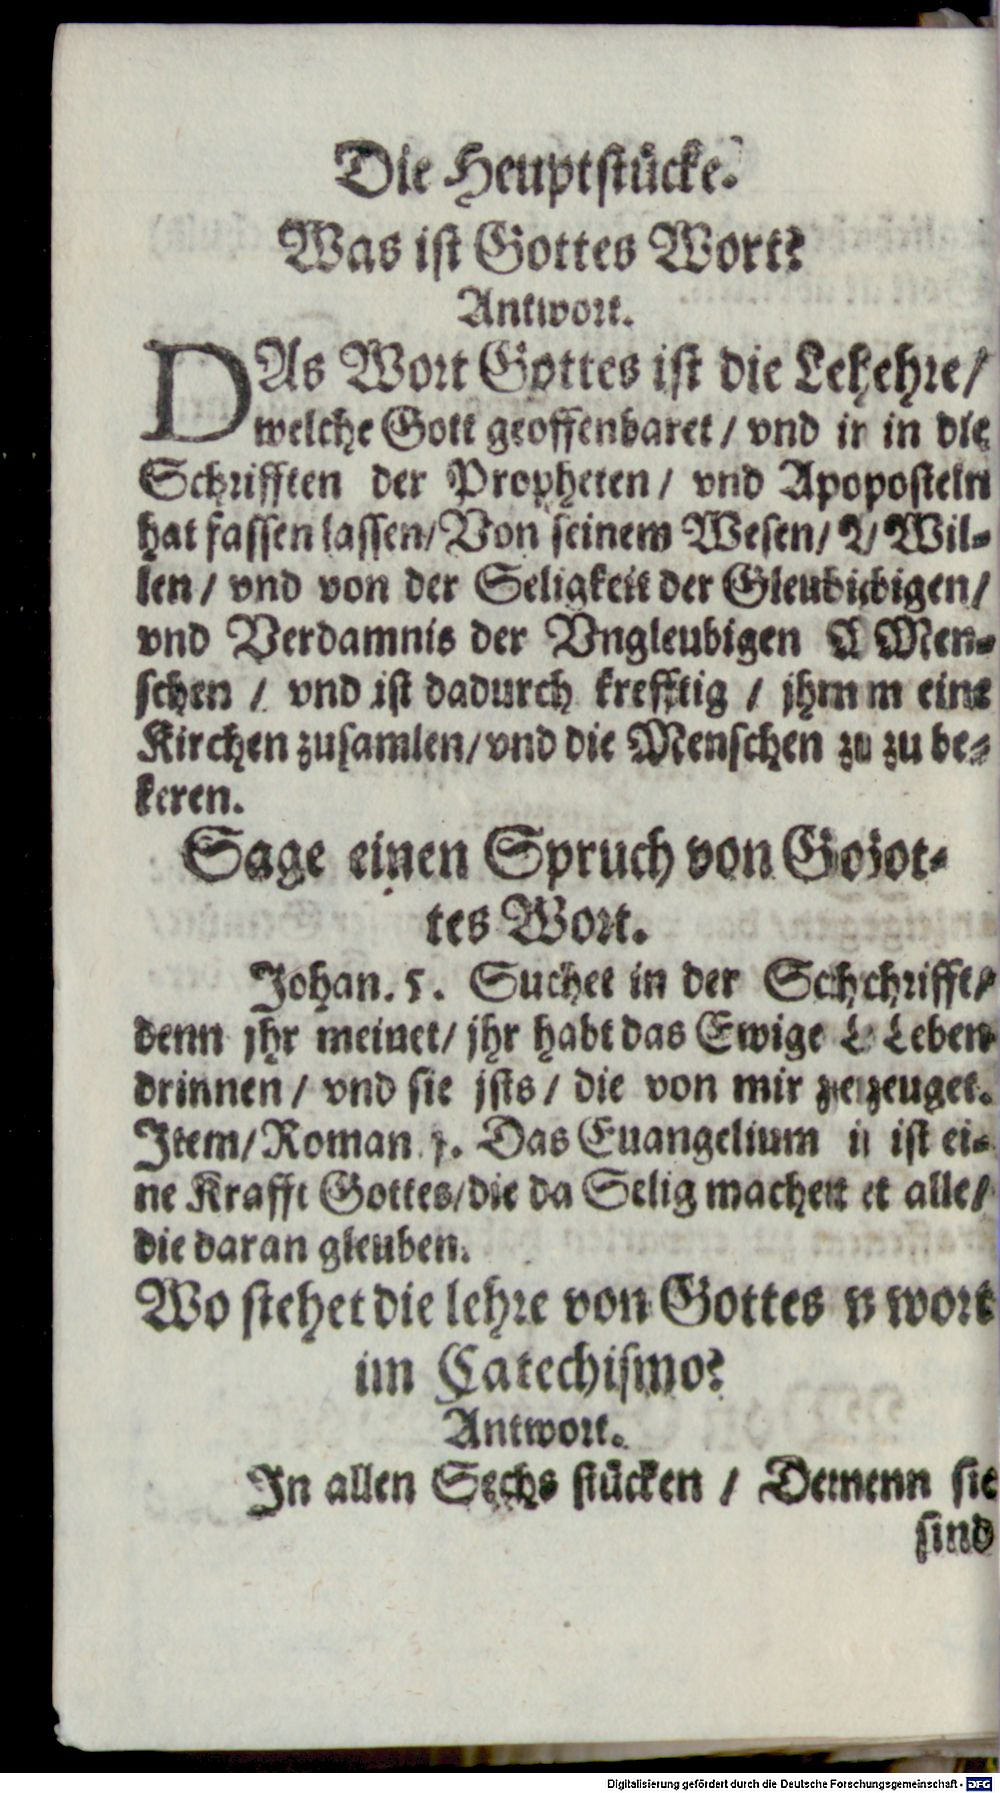 Die Heuptstücke.
Was ist Gottes Wort?
Antwort.
DAs Wort Gottes ist die Lehre/
welche Gott geoffenbaret / vnd in die
Schrifften der Propheten / vnd Aposteln
hat fassen lassen/ Von seinem Wesen/ Wil-
len / vnd von der Seligkeit der Gleubigen/
vnd Verdamnis der Vngleubigen Men-
schen / vnd ist dadurch krefftig / jhm eine
Kirchen zusamlen/ vnd die Menschen zu be-
keren.
Sage einen Spruch von Got-
tes Wort.
Johan. 5. Suchet in der Schrifft/
denn jhr meinet/ jhr habt das Ewige Leben
drinnen / vnd sie ists / die von mir zeuget.
Item/ Roman. 1. Das Euangelium ist ei-
ne Krafft Gottes/ die da Selig machet alle/
die daran gleuben.
Wo stehet die lehre von Gottes wort
im Catechismo?
Antwort.
In allen Sechs stücken / Denn sie
sind
Digitalisierung gefördert durch die Deutsche Forschungsgemeinschaft - DFG